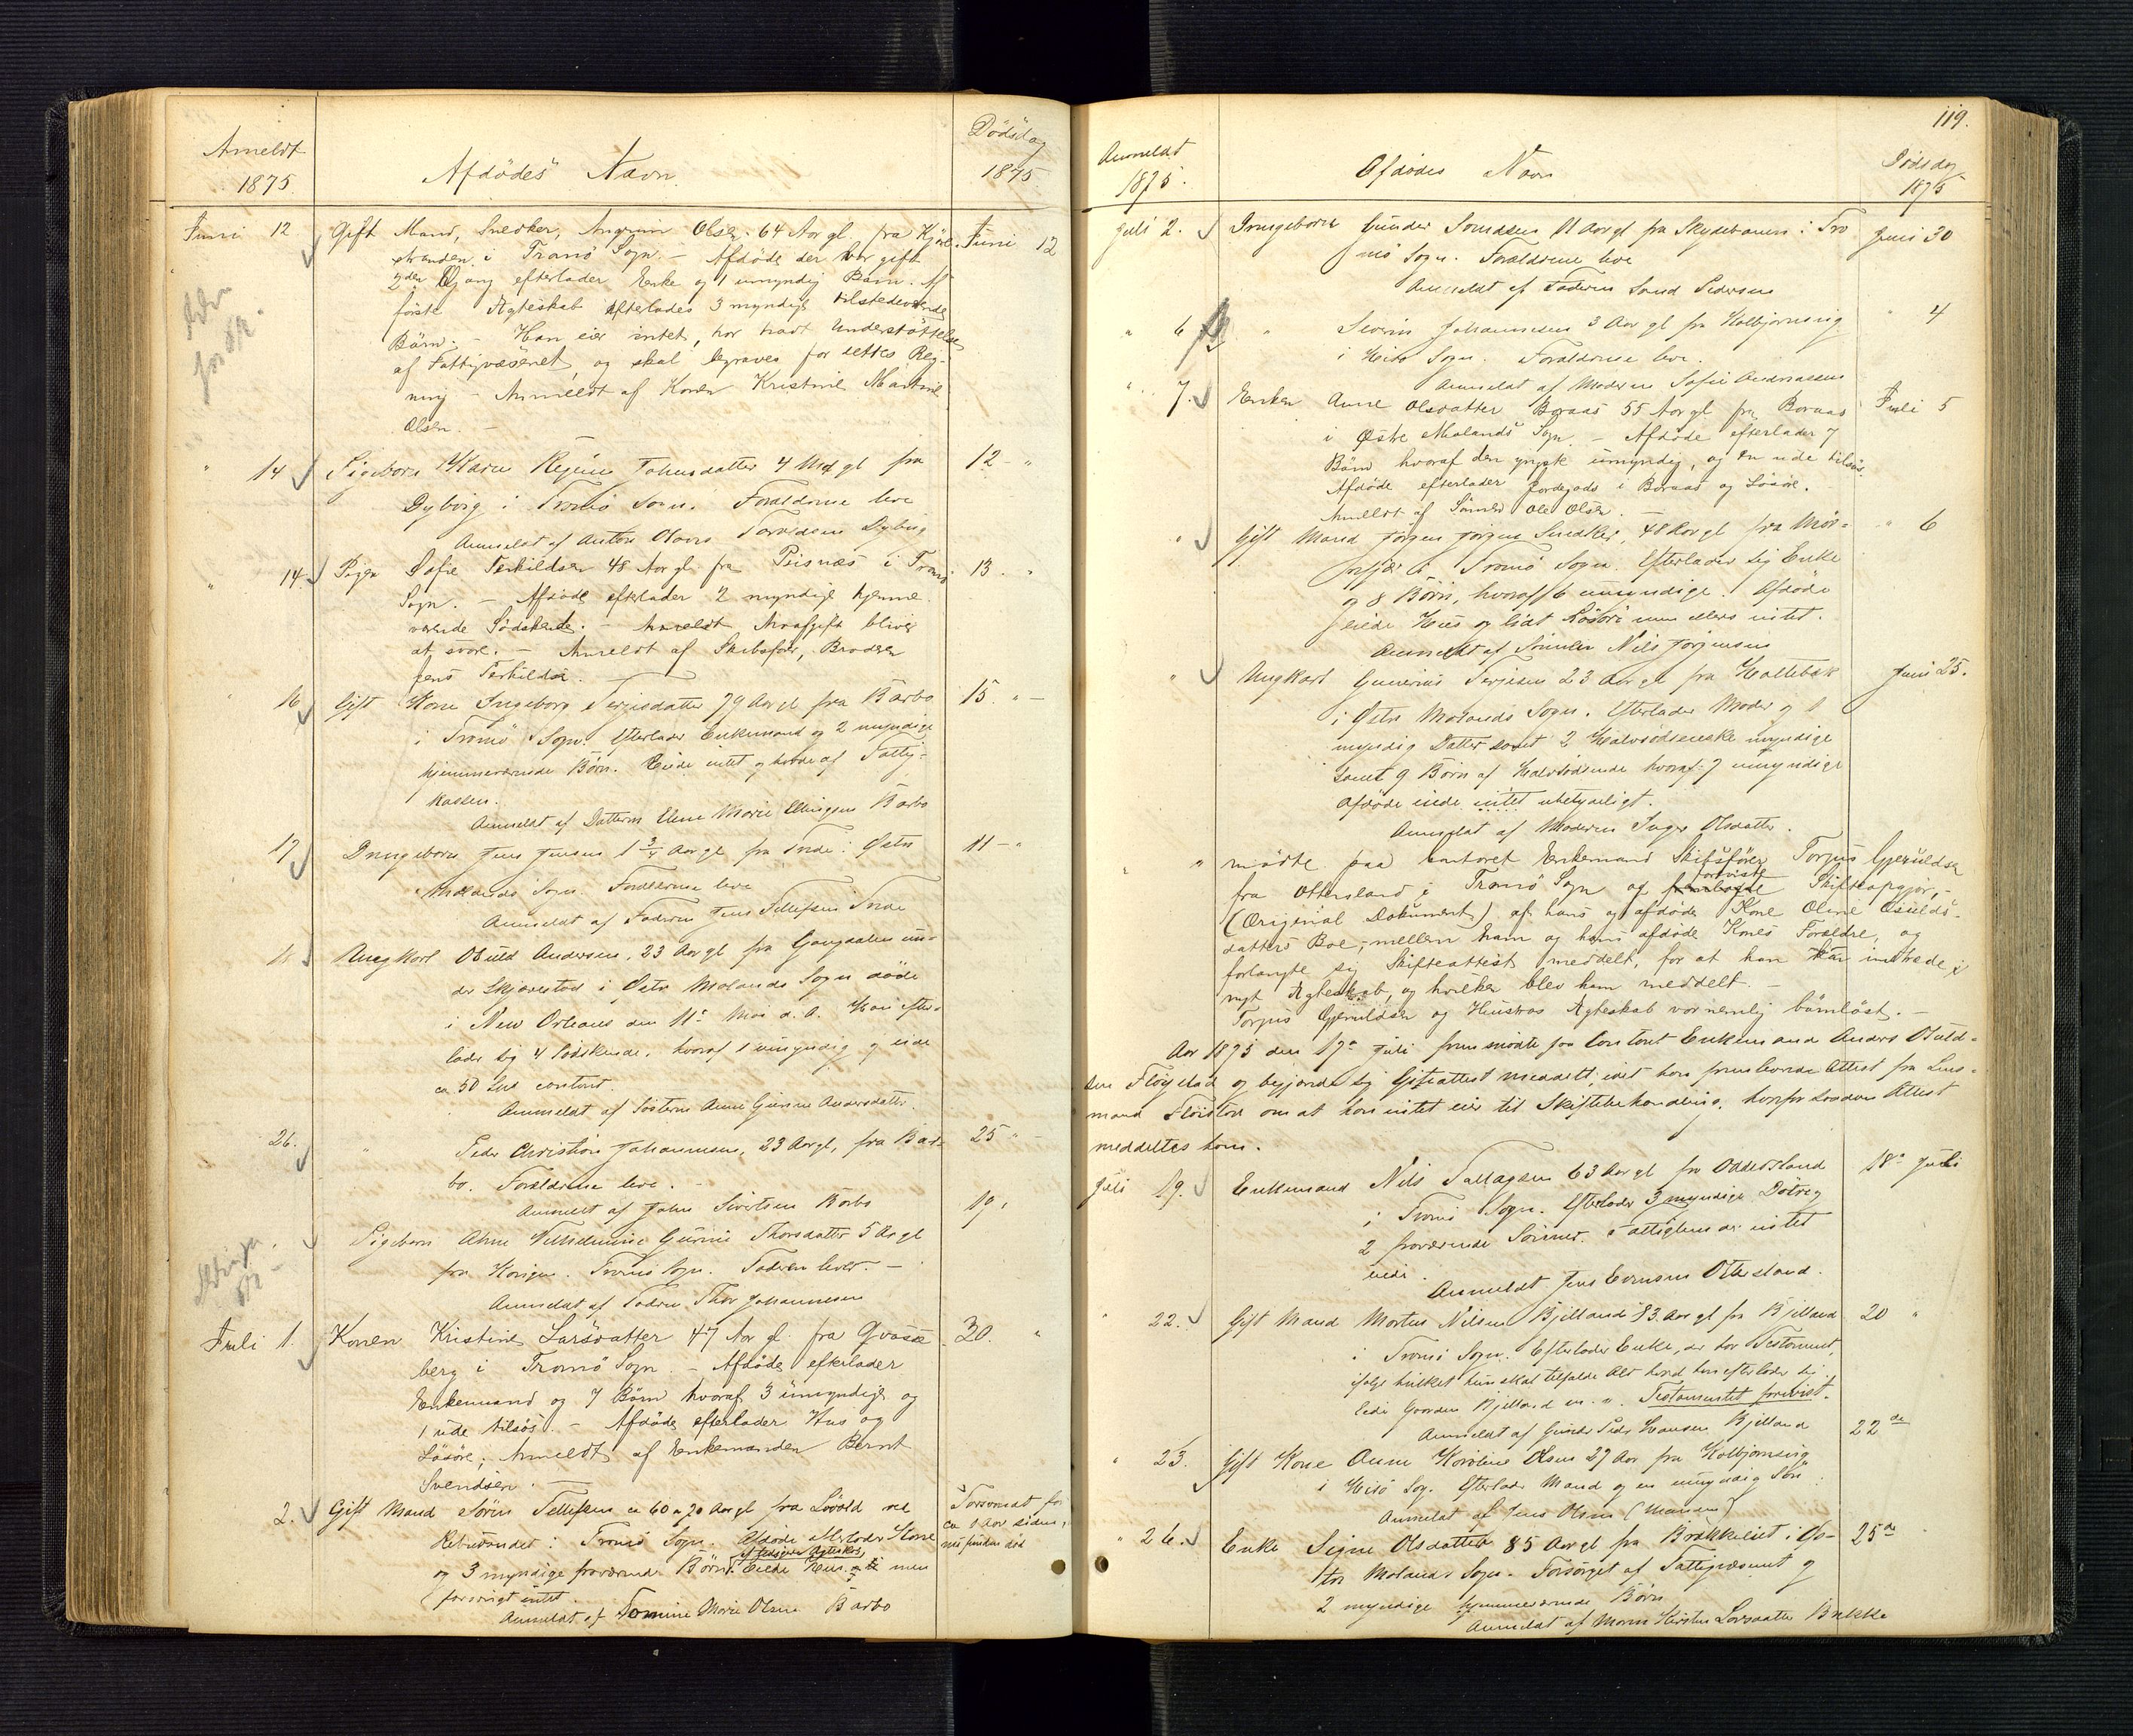 Anmeldt 1875. Afdödes Navn. Dödsdag 1875
Juni 12 Gift Mand, Snedker, Ole Olsen 64 Aar gl. fra Juni 12
stranden i Tromö Sogn. – Afdöde der var gift
2den Gang efterlader Enke og 1 umyndig Barn. Af
förste Ægteskab efterlades 3 myndige tilstedeværende
Börn. – Han eier intet, har havt Understöttelse
af Fattigvæsenet, og skal begraves for dettes Reg-
ning – Anmeldt af Konen Kristine Martine
Olsen. –
" 14 Pigebarn Karen Regine Johnsdatter 4 Md gl fra 12 – "
Dybvig i Tromö Sogn. Forældrene leve
Anmeldt af Anton Olaves Dybvig
" 14. Pigen Sofie Terkildsen 48 Aar gl. fra Pisnæs i Tromö 13. "
Sogn. – Afdöde efterlader 2 myndige hjemme-
værende Södskende. – Arveafgift bliver
at svare. – Anmeldt af Skibsförer, Broderen
Jens Terkildsen. –
" 16 Gift Kone Ingeborg Terjesdatter 79 Aar gl fra Barbo 15. " –
i Tromö Sogn. Efterlader Enkemand og 2 myndige
hjemmeværende Börn. Eiede intet og af Fattig-
kassen.
Anmeldt af Datteren Elene Marie Barbo
17 Drengebarn Jens Jensen 1 3/4 Aar gl fra i Östre 11 – "
Molands Sogn Forældrene leve
Anmeldt af Faderen Jens Tellefsen
Ungkarl Osuld Andersen, 23 Aar gl fra un-
der Skjævestad i Östre Molands Sogn döde
i New Orleans den 11te Mai d. A. Han efter-
lader sig 4 Södskende, hvoraf 1 umyndig og eide
ca 50 contant.
Anmeldt af Sösteren Anne Gurine Andersdatter
26. " Peder Christian Johannesen, 23 Aar gl, fra Bar- 25 " –
bo. Forældrene leve. –
Anmeldt af John Sivertsen Barbo
Pigebarn Anne Vilhelmine Gurine Thorsdatter 5 Aar gl 19,
fra Kongen. Tromö Sogn. Faderen lever. –
Anmeldt af Faderen Thor Johannesen
Juli 1. Konen Kristine Larsdatter 47 Aar gl. fra 30. "
berg i Tromö Sogn. – Afdöde efterlader
Enkemand og 7 Börn hvoraf 3 umyndige og
1 ude tilsös. – Afdöde efterlader Hus og
Lösöre. Anmeldt af Enkemanden Bernt
Svendsen. –
2. Gift Mand Sören Tellefsen ca 60 a 70 Aar gl fra ved Forsvandt for
i Tromö Sogn. Afdöde efterlader Kone ca 1 Aar siden,
og 3 myndige fraværende Börn. Eiede Hus men
forövrigt intet.
Anmeldt af Tomine Marie Olsen Barbo
119.
Anmeldt 1875. Afdödes Navn Dödsdag 1875
Juli 2. Drengebarn Gunder 11 Aar gl fra Skydebanen i Tro Juni 30
mö Sogn. Forældrene leve
Anmeldt af Faderen Pedersen
" 6 " Severin Johannesen 3 Aar gl fra Kolbjörnsvig " 4
i Hisö Sogn. Forældrene leve.
Anmeldt af Moderen Sofie Andreassen
" 7. Enken Anne Olsdatter Boraas 55 Aar gl fra Boraas Juli 5
i Östre Molands Sogn. – Afdöde efterlader 7
Börn hvoraf den yngste umyndig, og en ude tilsös.
Afdöde efterlader Jordegods i Boraas og Lösöre.
Anmeldt af Sönnen Ole Olsen. –
" Gift Mand Jörgen Jörgensen Snedker, 48 Aar gl fra " 6
i Tromö Sogn. Efterlader sig Enke
og 8 Börn, hvoraf 6 umyndige. Afdöde
eiede Hus og lidt Lösöre men ellers intet.
Anmeldt af Sönnen Nils Jörgensen
" Ungkarl Gunerius Terjesen 23 Aar gl fra Holtebæk Juni 25.
i Östre Molands Sogn. Efterlader Moder og 1
myndig Datter samt 2 Halvsödskende myndige
samt 9 Börn af Halvsödskende hvoraf 7 umyndige
Afdöde eiede intet ubetydeligt.
Anmeldt af Moderen Inger Olsdatter.
" " mödte paa Contoret Enkemand Skibsförer Torjus Gjeruldsen
foreviste
fra Ottersland i Tromö Sogn og Skifteopgjör, –
(Original Dokument) af hans og afdöde Kone Oline Osulds-
datters Boe, mellem ham og hans afdöde Kones Forældre, og
forlangte sig Skifteattest meddelt, for at han kan indtræde i
nyt Ægteskab, og hvilken blev ham meddelt. –
Torjus Gjeruldsen og Hustrues Ægteskab var nemlig barnlöst. –
Aar 1875 den 17de Juli fremmödte paa Contoret Enkemand Anders Osuld-
sen Flöystad og begjærede sig Giftattest meddelt, idet han fremleverede Attest fra Lens-
mand Flöistad om at han intet eier til Skiftebehandling, hvorfor saadan Attest
meddeltes ham.
Juli 19. Enkemand Nils Tallagsen 63 Aar gl fra Ottersland 18de Juli
i Tromö Sogn. Efterlader 3 myndige Dötre og
2 fraværende Sönner. intet
eiede.
Anmeldt Jens Evensen Ottersland.
" 22. Gift Mand Morten Nilsen Bjelland 83 Aar gl fra Bjelland 20 "
i Tromö Sogn. Efterlader Enke, der har Testament,
ifölge hvilket hun skal tilfalde Alt hvad han efterlader sig
Eiede Gaarden Bjelland m. v. Testamentet forevist.
Anmeldt af Peder Hansen Bjelland
" 23. Gift Kone Anne Karoline Olsen 27 Aar fra Kolbjörnsvig 22de
i Hisö Sogn. Efterlader Mand og en umyndig Sön.
Anmeldt af Jens Olsen (Manden)
" 26. Enke Signe Olsdatter 85 Aar gl fra i Ös- 25de
tre Molands Sogn. Forsörget af Fattigvæsenet og
2 myndige hjemmeværende Börn
Anmeldt af Kirsten Larsdatter